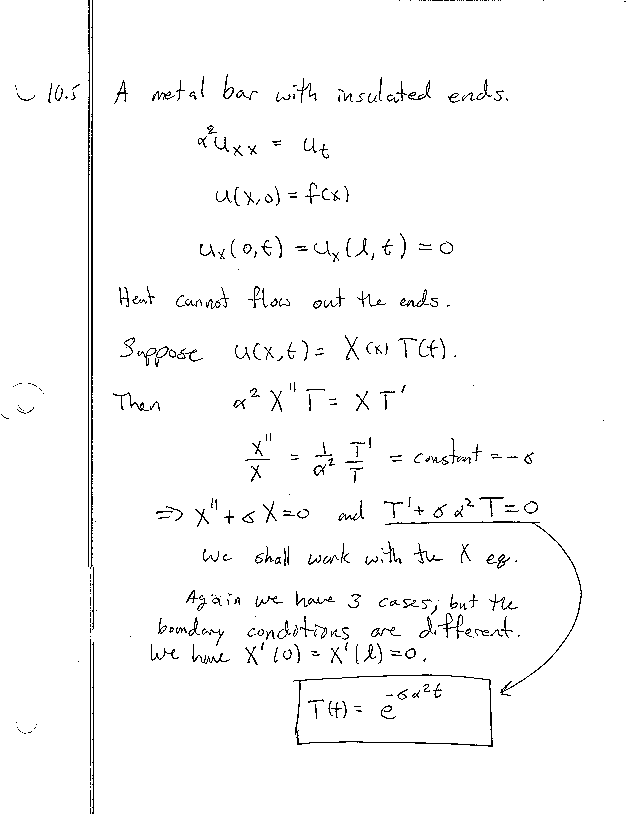 10.5 A metal bar with insulated ends.
α²u_xx = u_t
u(x,0) = f(x)
u_x(0,t) = u_x(l,t) = 0
Heat cannot flow out the ends.
Suppose u(x,t) = X(x) T(t).
Then α² X" T = X T'
X"/X = 1/α² T'/T = constant = -σ
⇒ X" + σ X = 0 and T' + σ α² T = 0
We shall work with the X eq.
Again we have 3 cases, but the
boundary conditions are different.
We have X'(0) = X'(l) = 0.
T(t) = e^{-σα²t}